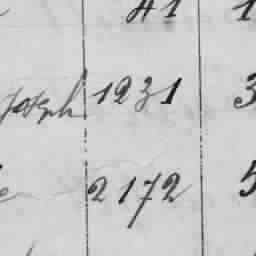 41 1
Joseph 1231 3
2172 5